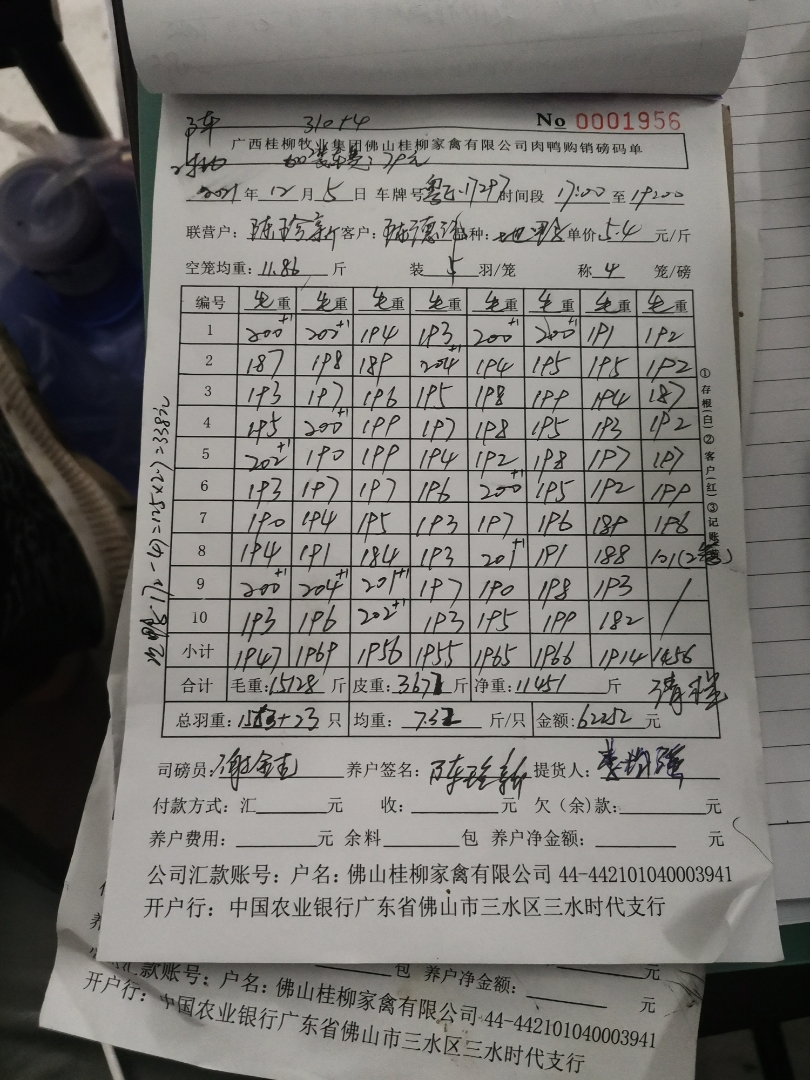 310+4
No 0001956
广西桂柳牧业集团佛山桂柳家禽有限公司肉鸭购销磅码单
2021年12月5日 车牌号 17297 时间段 17:00 至 19:00
联营户: 陈珍新 客户: 陈德 品种: 单价5.4 元/斤
空笼均重: 11.86 斤 装 5 羽/笼 称 4 笼/磅
编号 毛重 毛重 毛重 毛重 毛重 毛重 毛重 毛重
1 200+1 202+1 194 193 200+1 200+1 191 192
2 187 198 189 204+1 194 195 195 192
3 193 197 196 195 198 199 194 187
4 195 200+1 199 197 198 195 193 192
5 202+1 190 199 194 192 198 197 197
6 193 197 197 196 200+1 195 192 199
7 190 194 195 193 197 196 189 196
8 194 191 184 193 201+1 191 188 101(2笼)
9 200+1 204+1 201+1 197 190 198 193 /
10 193 196 202+1 193 195 199 182
小计 1947 1969 1956 1955 1965 1966 1914 1456
合计 毛重: 15128 斤 皮重: 3677 斤 净重: 11451 斤
总羽重: 1553+23 只 均重: 7.37 斤/只 金额: 62252 元
司磅员: 谢金 养户签名: 陈珍新 提货人:
付款方式: 汇 元 收: 元 欠(余)款: 元
养户费用: 元 余料 包 养户净金额: 元
公司汇款账号: 户名: 佛山桂柳家禽有限公司 44-442101040003941
开户行: 中国农业银行广东省佛山市三水区三水时代支行
①存根(白)②客户(红)③记账
=125×2.7=338元
包 养户净金额: 元
汇款账号: 户名: 佛山桂柳家禽有限公司 44-442101040003941
元
开户行: 中国农业银行广东省佛山市三水区三水时代支行